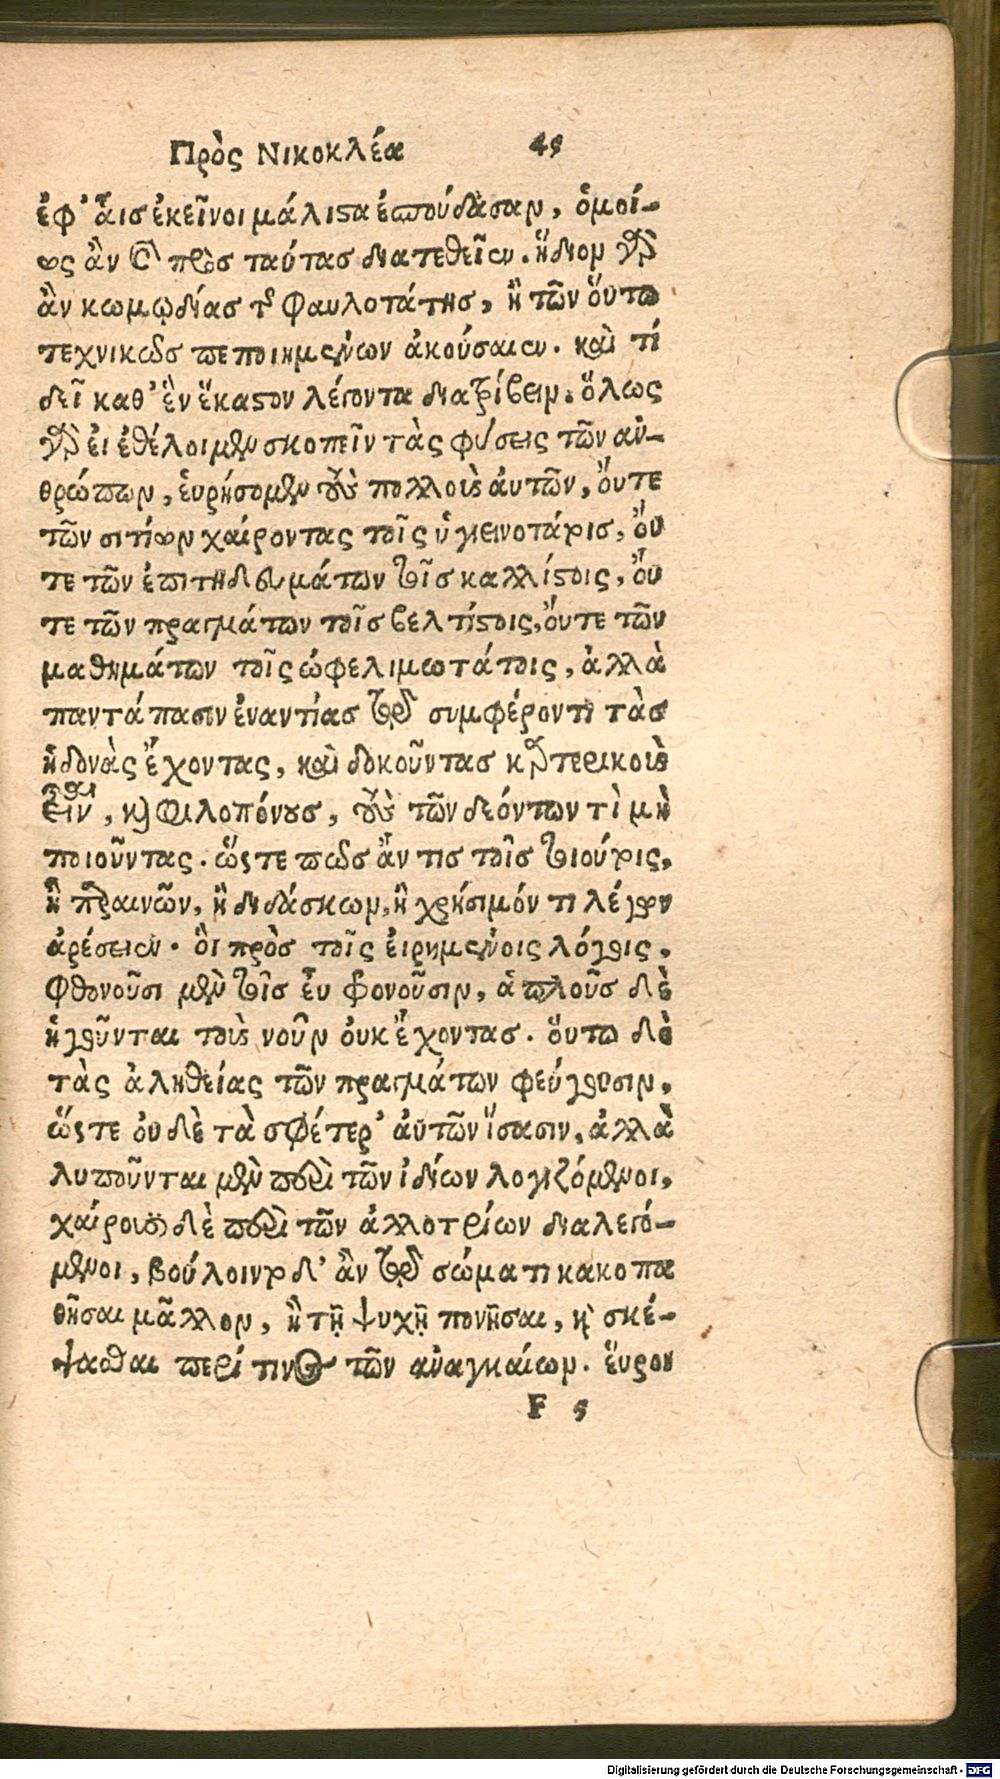 Πρὸς Νικοκλέα 45
ἐφ' αἷσ ἐκεῖνοι μάλιϛα ἐσπούδασαν, ὁμοί-
ως ἂν καὶ πρὸσ ταύτασ διατεθεῖεν. ἥδιον γὰρ
ἂν κωμῳδίασ τῆς φαυλοτάτησ, ἢ τῶν ὅυτω
τεχνικῶσ πεποιημένων ἀκούσαιεν. καὶ τί
δεῖ καθ' ἓν ἕκαϛον λέγοντα διατρίβειν. ὅλως
γὰρ ἐι ἐθέλοιμεν σκοπεῖν τὰς φύσεις τῶν ἀν-
θρώπων, ἑυρήσομεν τοὺς πολλοὺς ἀυτῶν, ὄυτε
τῶν σιτίων χαίροντας τοῖς ὑγιεινοτάτοισ, ὄυ
τε τῶν ἐπιτηδευμάτων τοῖσ καλλίϛοις, ὄυ
τε τῶν πραγμάτων τοῖσ βελτίϛοις, ὄυτε τῶν
μαθημάτων τοῖς ὠφελιμωτάτοις, ἀλλὰ
παντάπασιν ἐναντίασ τῷ συμφέροντι τὰσ
ἡδονὰς ἔχοντας, καὶ δοκοῦντασ καρτερικοὺς
εἶναι, καὶ φιλοπόνουσ, τοὺς τῶν δεόντων τὶ μὴ
ποιοῦντας. ὥϛε πῶσ ἄν τισ τοῖσ τοιούτοις,
ἢ παραινῶν, ἢ διδάσκων, ἢ χρήσιμόν τι λέγων
ἀρέσειεν. ὃι πρὸσ τοῖς ἐιρημένοις λόγοις,
φθονοῦσι μὲν τοῖσ ἐυ φρονοῦσιν, ἁπλοῦσ δὲ
ἡγοῦνται τοὺς νοῦν ὀυκ ἔχοντασ. ὅυτω δὲ
τὰς ἀληθείας τῶν πραγμάτων φεύγουσιν,
ὥϛε ὀυδὲ τὰ σφέτερ' ἀυτῶν ἴσασιν, ἀλλὰ
λυποῦνται μὲν περὶ τῶν ἰδίων λογιζόμενοι,
χαίρουσι δὲ περὶ τῶν ἀλλοτρίων διαλεγό-
μενοι, βούλοιντο δ' ἂν τῷ σώματι κακοπα
θῆσαι μᾶλλον, ἢ τῇ ψυχῇ πονῆσαι, καὶ σκέ-
ψασθαι περί τινος τῶν ἀναγκαίων. ἕυροι
F 5
Digitalisierung gefördert durch die Deutsche Forschungsgemeinschaft - DFG